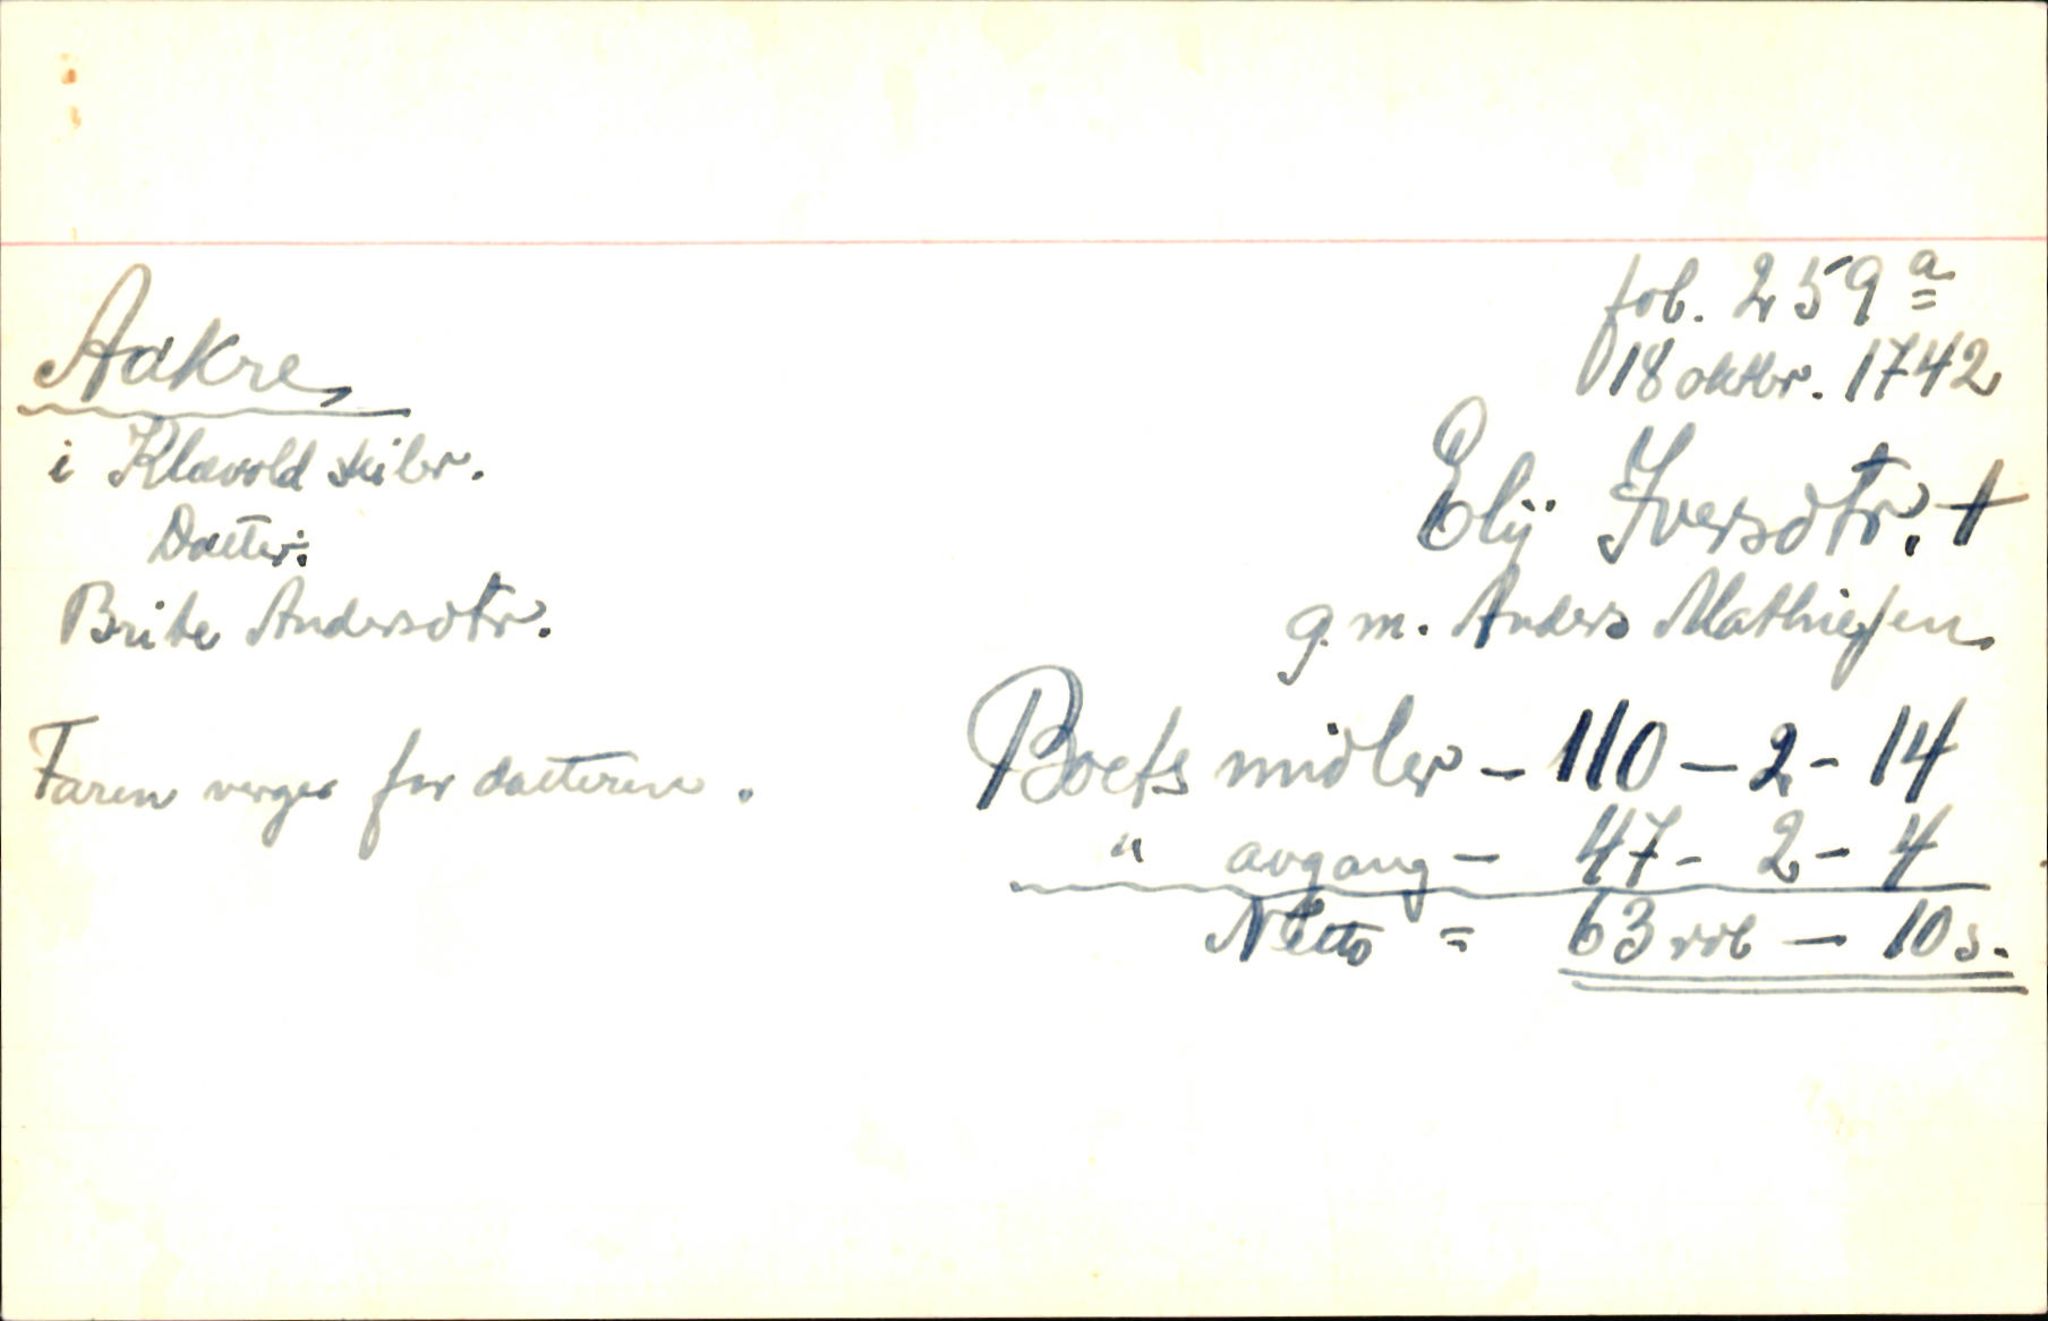 fol. 259 a
18 oktbr. 1742
Aakre
i Klævold skibr.
Datter:
Brite Andersdtr.
Elÿ Iversdtr. +
g. m. Anders Mathieſen.
Faren verger for datteren.
Boets midler – 110 – 2 – 14
" avgang – 47 – 2 – 4
Netto = 63 rdl – 10 s.